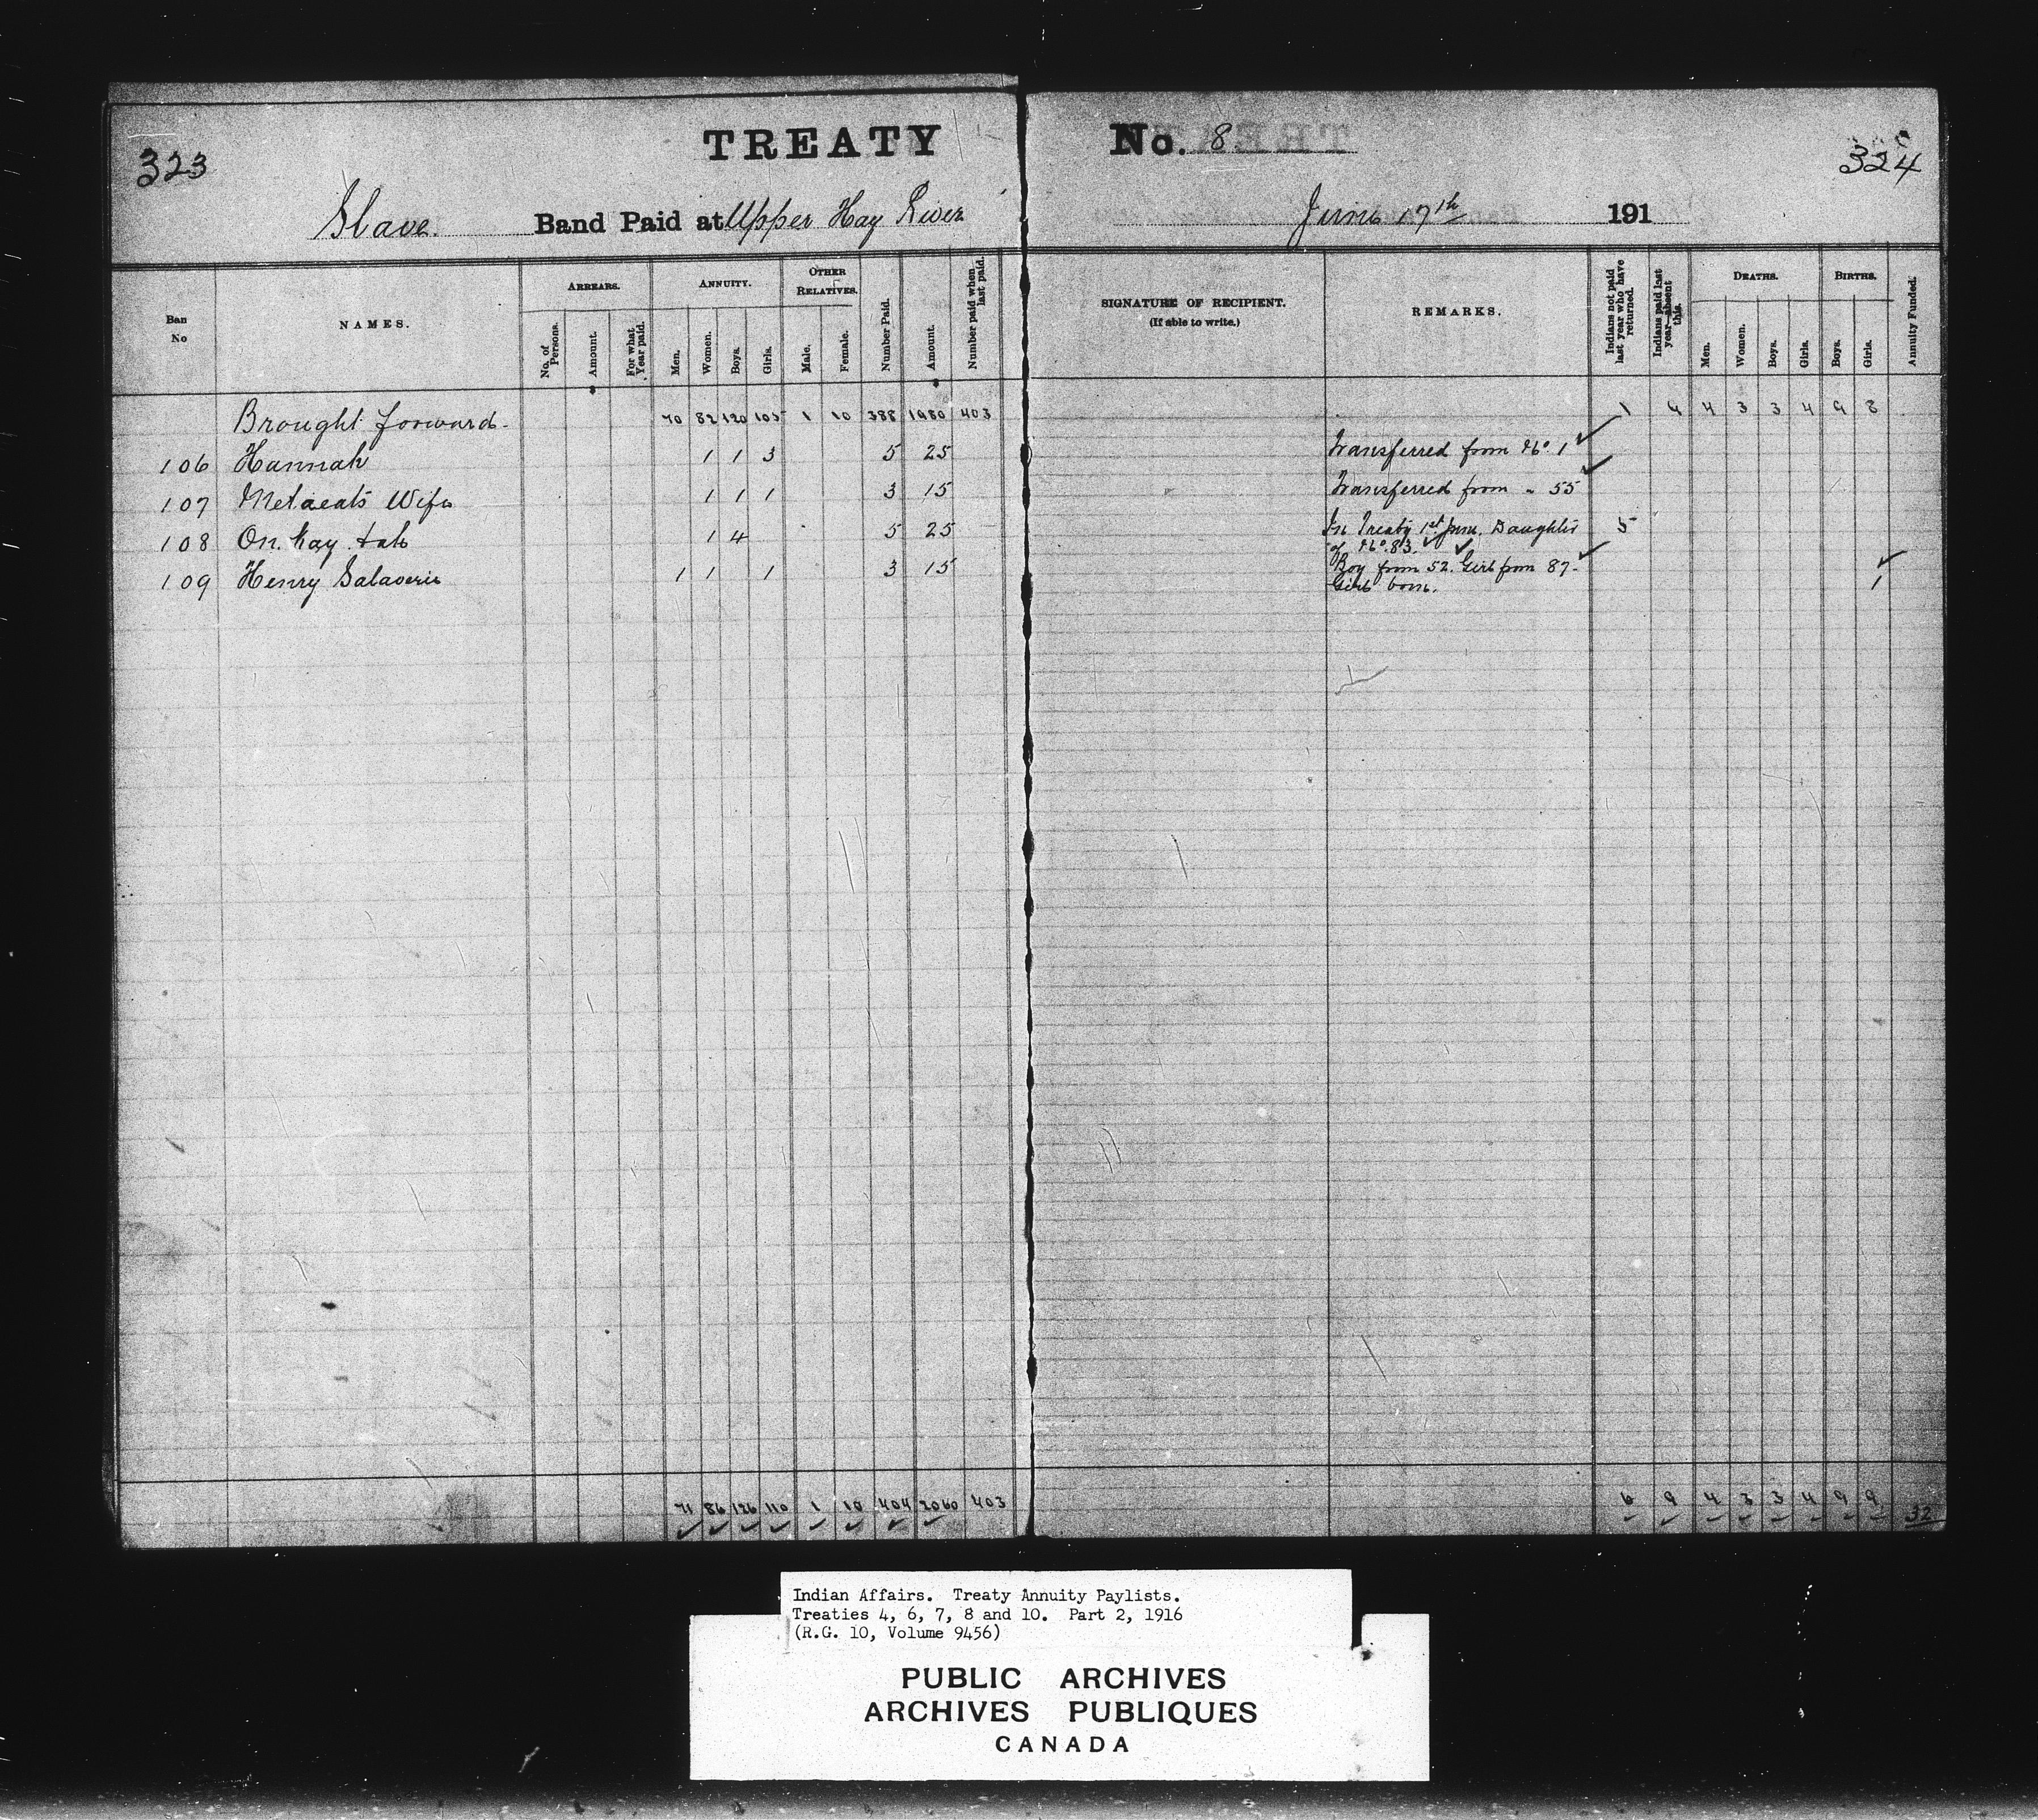 323
TREATY No. 8
324
Slave. Band Paid at Upper Hay River June 17th 191
Ban No
NAMES.
ARREARS.
No. of Persons.
Amount.
For what Year paid.
ANNUITY.
Men.
Women.
Boys.
Girls.
OTHER RELATIVES.
Male.
Female.
Number Paid.
Amount.
Number paid when last paid.
SIGNATURE OF RECIPIENT.
(If able to write.)
REMARKS.
Indians not paid last year who have returned.
Indians paid last year—absent this.
DEATHS.
Men.
Women.
Boys.
Girls.
BIRTHS.
Boys.
Girls.
Annuity Funded.
Brought forward- 70 82 120 105 1 10 388 1980 403 1 9 4 3 3 4 9 8
106 Hannah 1 1 3 5 25 Transferred from No. 1
107 Metaeats Wife 1 1 1 3 15 Transferred from " 55
108 On. hay. tah 1 4 5 25 In Treaty 1st time. Daughter 5
of No. 83.
109 Henry Salaverie 1 1 1 3 15 Boy from 52. Girl from 87-
Girl born. 1
71 86 126 110 1 10 404 2060 403 6 9 4 3 3 4 9 9 32
Indian Affairs. Treaty Annuity Paylists.
Treaties 4, 6, 7, 8 and 10. Part 2, 1916
(R.G. 10, Volume 9456)
PUBLIC ARCHIVES
ARCHIVES PUBLIQUES
CANADA